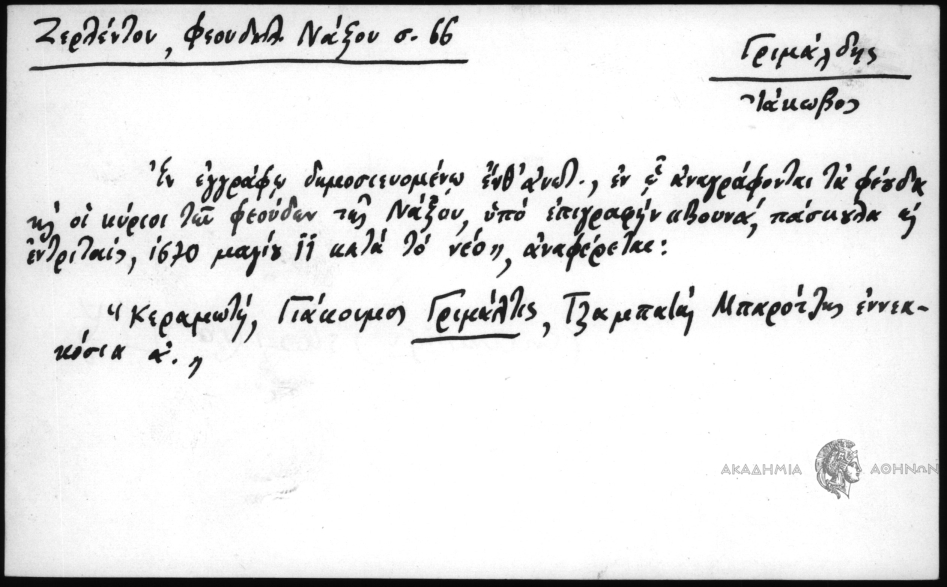 Ζερλέντου, Φεουδαλ. Νάξου σ. 66
Γριμάλδης
Ἰάκωβος
Ἐν ἐγγράφῳ δημοσιευομένῳ ἔνθ' ἀνωτ., ἐν ᾧ ἀναγράφονται τὰ φέουδα
κ̀ οἱ κύριοι τῶν φεούδων τῆς Νάξου, ὑπὸ ἐπιγραφὴν «Βουνά, πάσκουλα κ̀
ἐντριταίς, 1670 μαγίου 11 κατὰ τὸ νέο», ἀναφέρεται:
«Κεραμωτή, Γιάκουμος Γριμάλτης, Τζαμπατά Μπαρότζης ἐννεα-
κόσια ἀ.»
ΑΚΑΔΗΜΙΑ ΑΘΗΝΩΝ